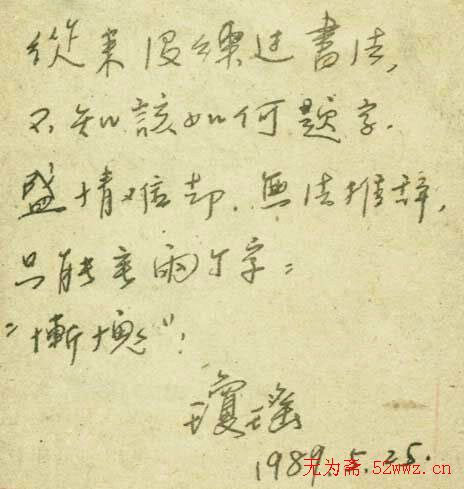 從来沒練过書法,
不知該如何題字.
盛情难却.無法推辞,
只能寫兩个字:
"慚愧".
瓊瑤
1989.5.25.
无为斋.52wwz.cn